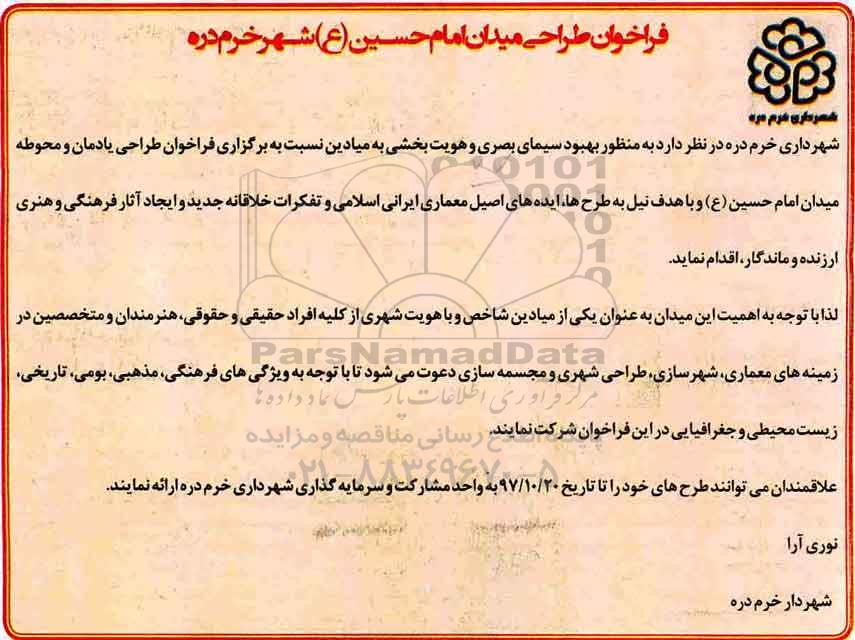 فراخوان طراحی میدان امام حسین (ع) شهر خرم دره
شهرداری خرم دره
شهرداری خرم دره در نظر دارد به منظور بهبود سیمای بصری و هویت بخشی به میادین نسبت به برگزاری فراخوان طراحی یادمان و محوطه
میدان امام حسین (ع) و با هدف نیل به طرح ها، ایده های اصیل معماری ایرانی اسلامی و تفکرات خلاقانه جدید و ایجاد آثار فرهنگی و هنری
ارزنده و ماندگار، اقدام نماید.
لذا با توجه به اهمیت این میدان به عنوان یکی از میادین شاخص و با هویت شهری از کلیه افراد حقیقی و حقوقی، هنرمندان و متخصصین در
ParsNamadData
زمینه های معماری، شهرسازی، طراحی شهری و مجسمه سازی دعوت می شود تا با توجه به ویژگی های فرهنگی، مذهبی، بومی، تاریخی،
مرکز فرآوری اطلاعات پارس نماد داده ها
زیست محیطی و جغرافیایی در این فراخوان شرکت نمایند.
پایگاه اطلاع رسانی مناقصه و مزایده
۰۲۱-۸۸۳۴۹۶۷۰-۵
علاقمندان می توانند طرح های خود را تا تاریخ ۹۷/۱۰/۲۰ به واحد مشارکت و سرمایه گذاری شهرداری خرم دره ارائه نمایند.
نوری آرا
شهردار خرم دره